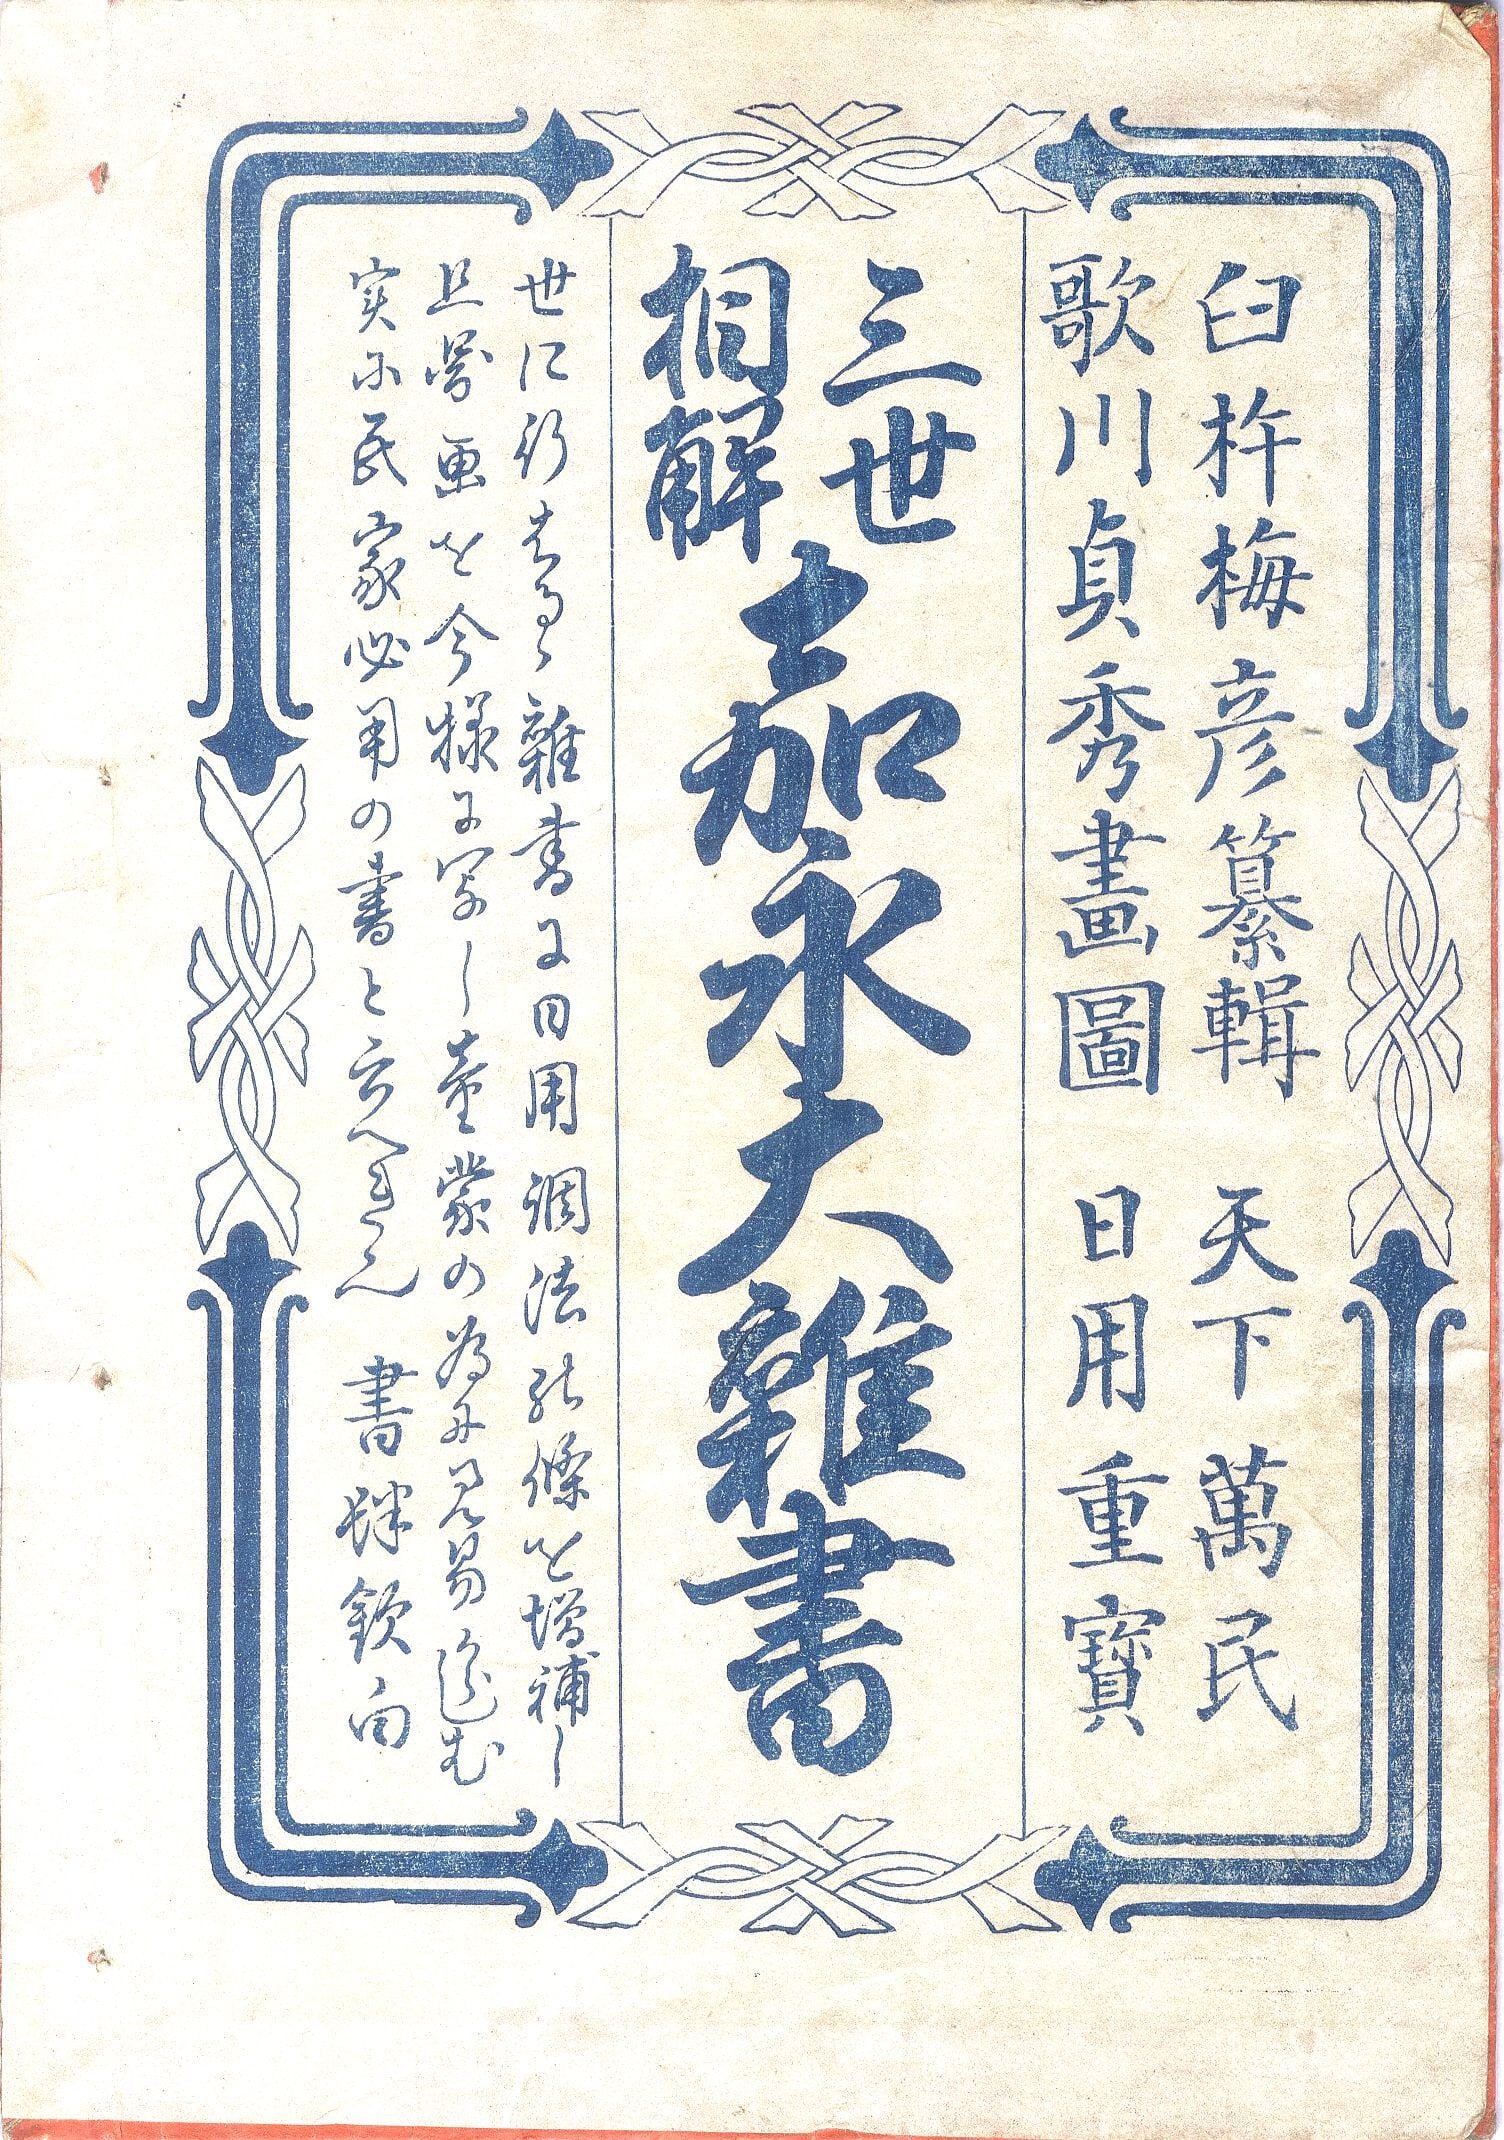 臼杵梅彦纂輯　天下萬民
歌川貞秀畫圖　日用重寶
三世
相解
嘉永大雜書
世に行はるゝ雜書に日用調法の條を増補し
且圖画を今様に写し童蒙の為に見易からしむ
実に民家必用の書と云べきのみ　書肆欽白